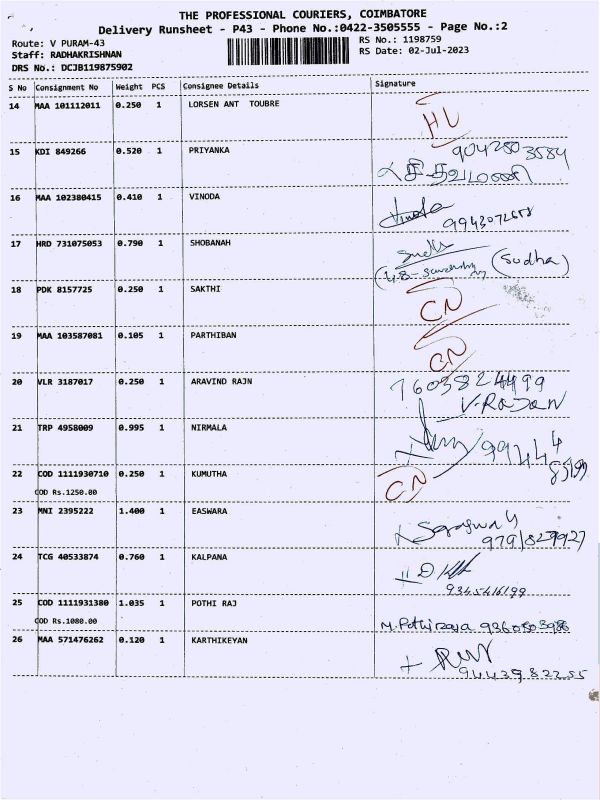 THE PROFESSIONAL COURIERS, COIMBATORE
Delivery Runsheet - P43 - Phone No.:0422-3505555 - Page No.:2
Route: V PURAM-43 RS No.: 1198759
Staff: RADHAKRISHNAN RS Date: 02-Jul-2023
DRS No.: DCJB119875902
S No Consignment No Weight PCS Consignee Details Signature
14 MAA 101112011 0.250 1 LORSEN ANT TOUBRE
HL
15 KDI 849266 0.520 1 PRIYANKA 9042803584
16 MAA 102380415 0.410 1 VINODA Vinoda
9943072678
17 HRD 731075053 0.790 1 SHOBANAH
(Sudha)
18 PDK 8157725 0.250 1 SAKTHI CN
19 MAA 103587081 0.105 1 PARTHIBAN CN
20 VLR 3187017 0.250 1 ARAVIND RAJN 7603824499
V.RAJAN
21 TRP 4958009 0.995 1 NIRMALA 99444
85199
22 COD 1111930710 0.250 1 KUMUTHA CN
COD Rs.1250.00
23 MNI 2395222 1.400 1 EASWARA
9791829927
24 TCG 40533874 0.760 1 KALPANA
9345416199
25 COD 1111931380 1.035 1 POTHI RAJ
COD Rs.1080.00 M.Pothiraja 9360503986
26 MAA 571476262 0.120 1 KARTHIKEYAN
9443982255